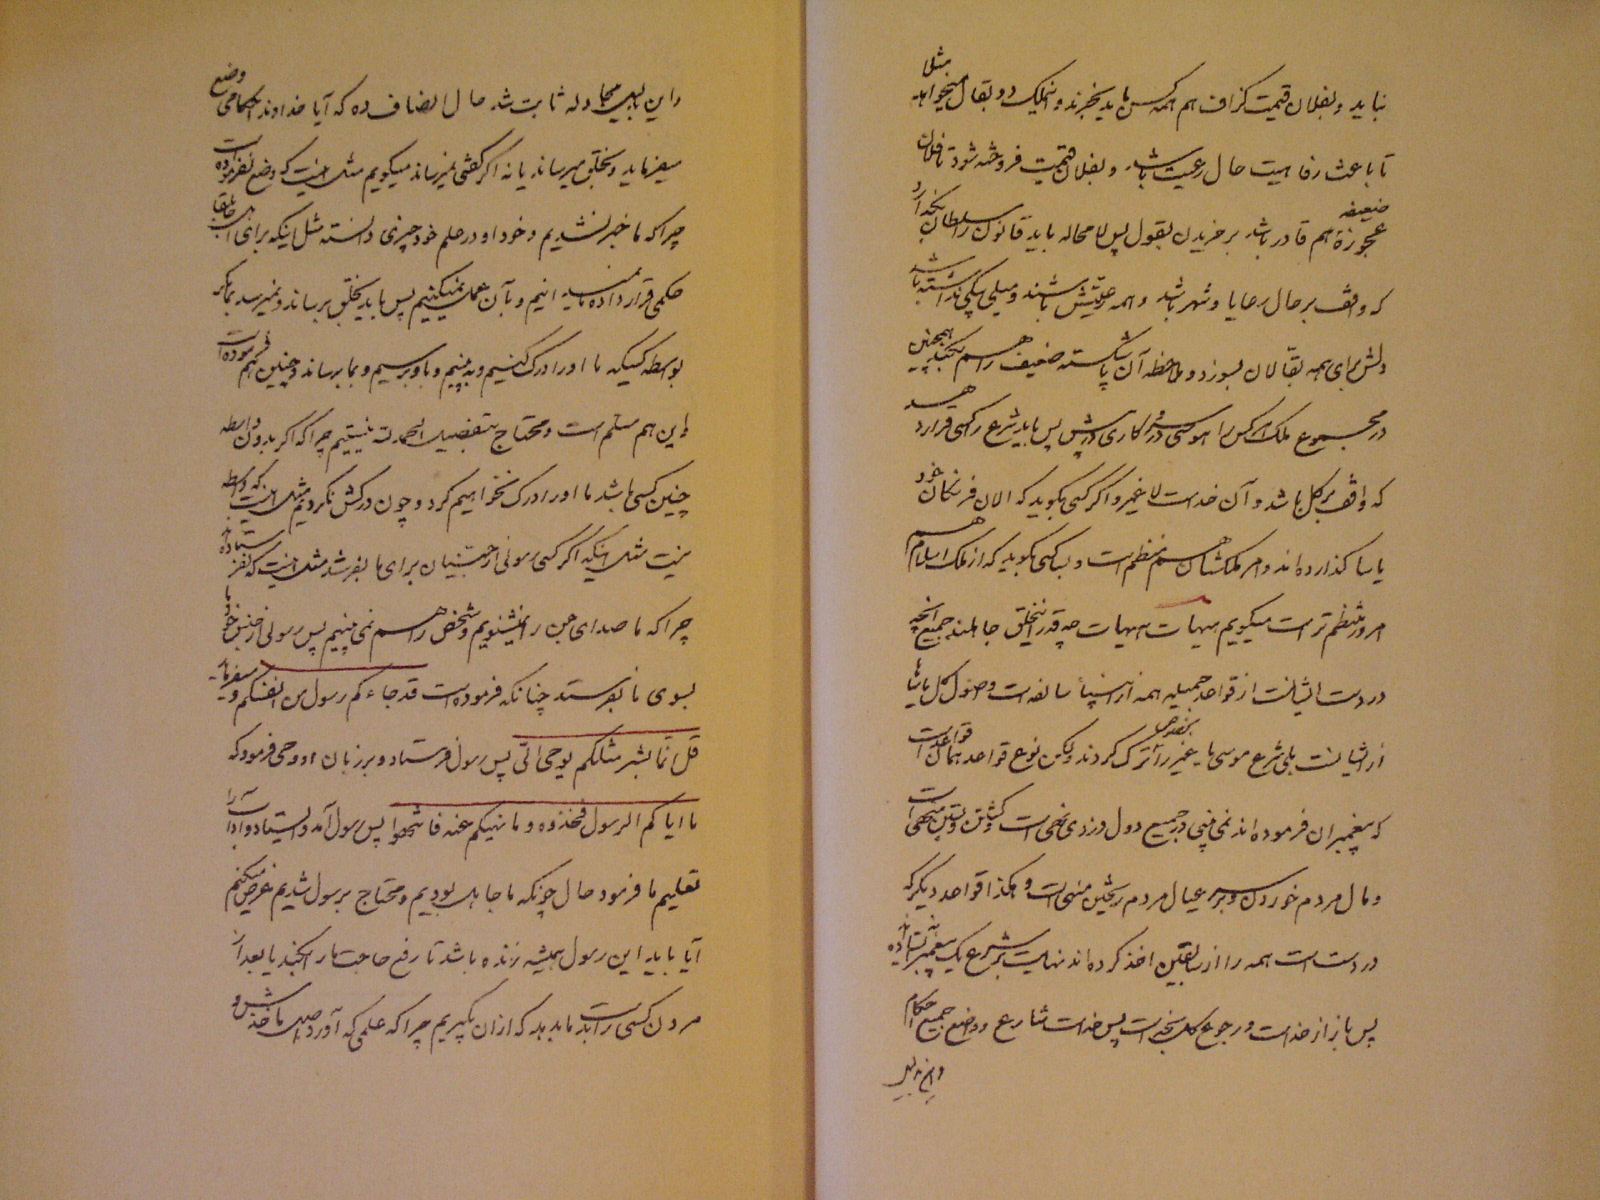 نباید و بفلان قیمت گزاف هم همه کس باید بخرند و اینک دو بقال مثلا میخواهد
تا باعث رفاهیت حال رعیت باشد و بفلان قیمت فروخته شود تا فلان
عجوزهٔ ضعیفه هم قادر باشد بر خریدن بقول پس لامحاله باید قانون را سلطان بگذارد
که واقف بر حال رعایا و شهر باشد و همه رعیتش باشند و میلی بیکی نداشته باشد
دلش برای همه بقالان بسوزد و ملاحظه آن پاشکسته ضعیف را هم بکند همچنین
در مجموع ملک هر کس را هوسی در سر و کاری در پیش پس باید شرع را کسی قرار دهد
که واقف بر کل باشد و آن خداست لا غیر و اگر کسی بگوید که الان فرنگان خود
یاسا گذارده‌اند و امر ملکشان هم منظم است و بسا کسی بگوید که از ملک اسلام هم
امروز منتظم‌تر است میگویم هیهات هیهات چه قدر این خلق جاهلند جمیع آنچه
در دست ایشانست از قواعد جمیله همه از انبیاء سالفه است و اصول کل یاساها
از ایشانست بلی شرع موسی یا غیر را بخصوص ترک کردند ولکن نوع قواعد همان قواعد است
که پیغمبران فرموده‌اند نمی‌بینی در جمیع دول دزدی نهی است و کشتن و بستن منهی است
و مال مردم خوردن و بر سر عیال مردم ریختن منهی است و هکذا قواعد دیگر که
در دست است همه را از سابقین اخذ کرده‌اند نهایت بر شرع یک پیغمبر نه‌ایستاده‌اند
پس باز از خداست و رجوع کل بخداست پس خداست شارع و واضع جمیع احکام
و این بدلیل
و این بدلیل مجادله ثابت شد حال انصاف ده که آیا خداوند احکامی وضع
میفرماید و بخلق میرساند یا نه اگر گفتی نمیرساند میگویم مثل اینست که وضع نفرموده است
چرا که ما خبر نشدیم و خود او در علم خود چیزی دانسته مثل اینکه برای جابلقا
حکمی قرار داده ما نمیدانیم و بآن عمل نمیکنیم پس باید بخلق برساند و نمیرسد بما مگر
بواسطه کسیکه ما او را درک کنیم و به بینیم و باو برسیم و بما برساند و چنین هم فرموده است
و این هم مسلم است و محتاج بتفصیل الحمد لله نیستیم چرا که اگر بدون واسطه
چنین کسی باشد ما او را درک نخواهیم کرد و چون درکش نکردیم مثل اینست که واسطه
نیست مثل اینکه اگر کسی رسولی از جنیان برای ما بفرستد مثل اینست که نفرستاده
چرا که ما صدای جن را نمیشنویم و شخص را هم نمی‌بینیم پس رسولی از جنس خود ما
بسوی ما بفرستد چنانکه فرموده است قد جاءکم رسول من انفسکم و میفرماید
قل انما بشر مثلکم یوحی الی پس رسول فرستاد و بر زبان او وحی فرمود که
ما ایاکم الرسول فخذوه و ما نهیکم عنه فانتهوا پس رسول آمد و ایستاد و آداب را
تعلیم ما فرمود حال چونکه ما جاهل بودیم و محتاج برسول شدیم عرض میکنم
آیا باید این رسول همیشه زنده باشد تا رفع حاجت ما را بکند یا بعد از
مردن کسی را باید بما بدهد که از آن بگیریم چرا که علمی که آورد اصل ماخذش و